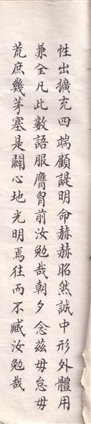 性出擴充四端顧諟明命赫赫昭然誠中形外體用
兼全凡此數語服膺胷前汝勉哉朝夕念茲毋怠毋
荒庶幾茅塞是闢心地光明焉往而不臧汝勉哉